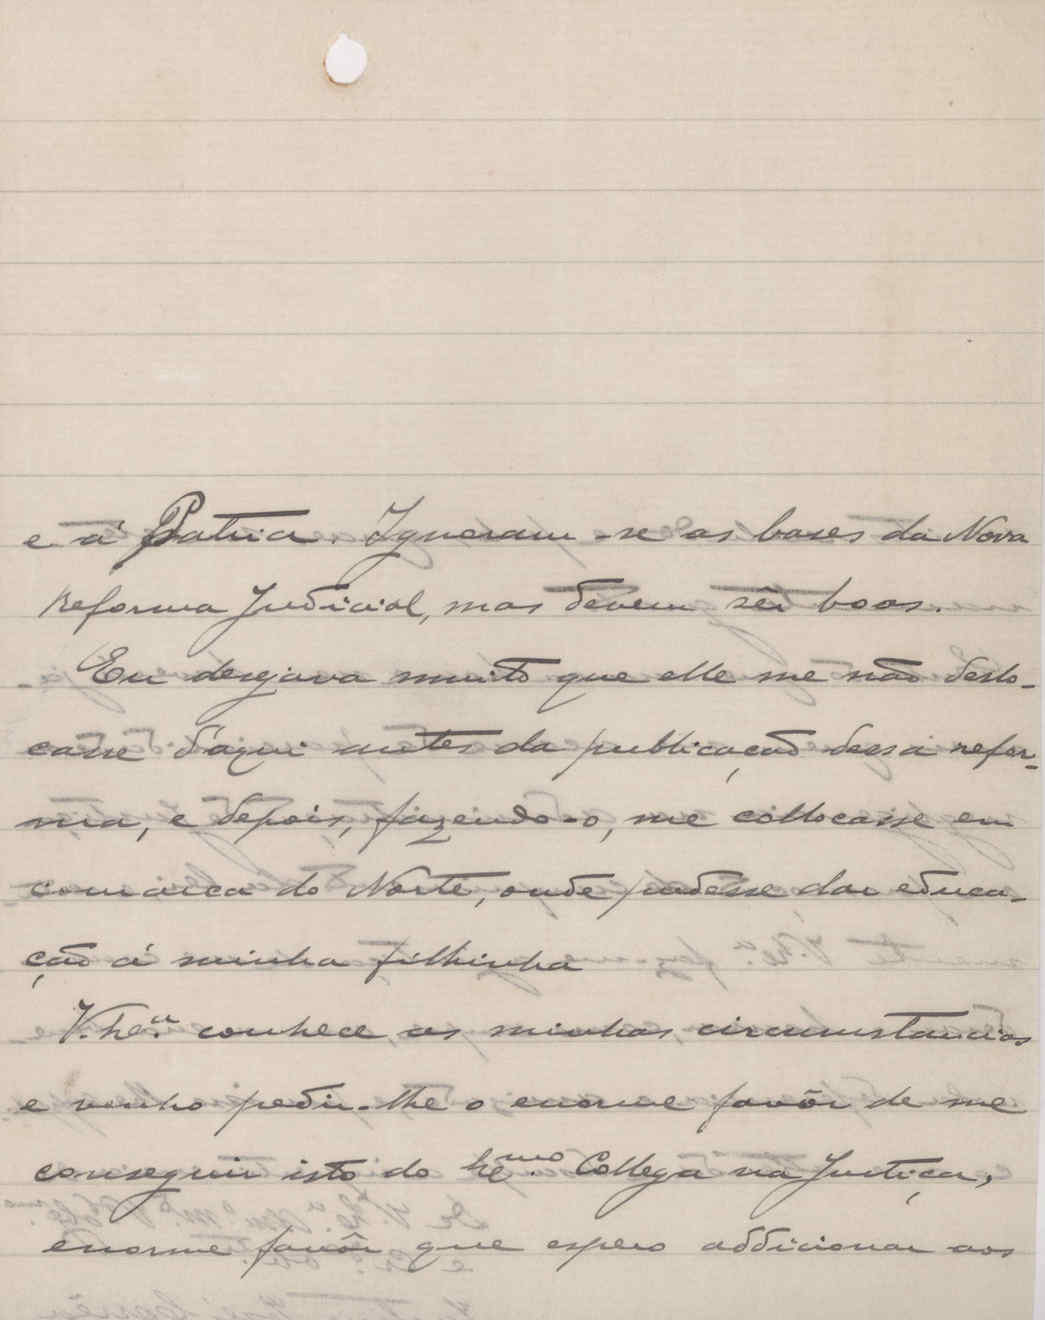 e á Patria. Ignoram-se as bases da Nova
Reforma Judicial, mas devem sêr boas.
Eu desejava muito que elle me não deslo-
casse d'aqui antes da publicação dessa refor-
ma, e depois, fazendo-o, me collocasse em
comarca do Norte, onde pudesse dar educa-
ção á minha filhinha
V. Exª. conhece as minhas circumstancias
e venho pedir-lhe o enorme favôr de me
conseguir isto do Exmo. Collega na Justiça,
enorme favôr que espero addicionar aos